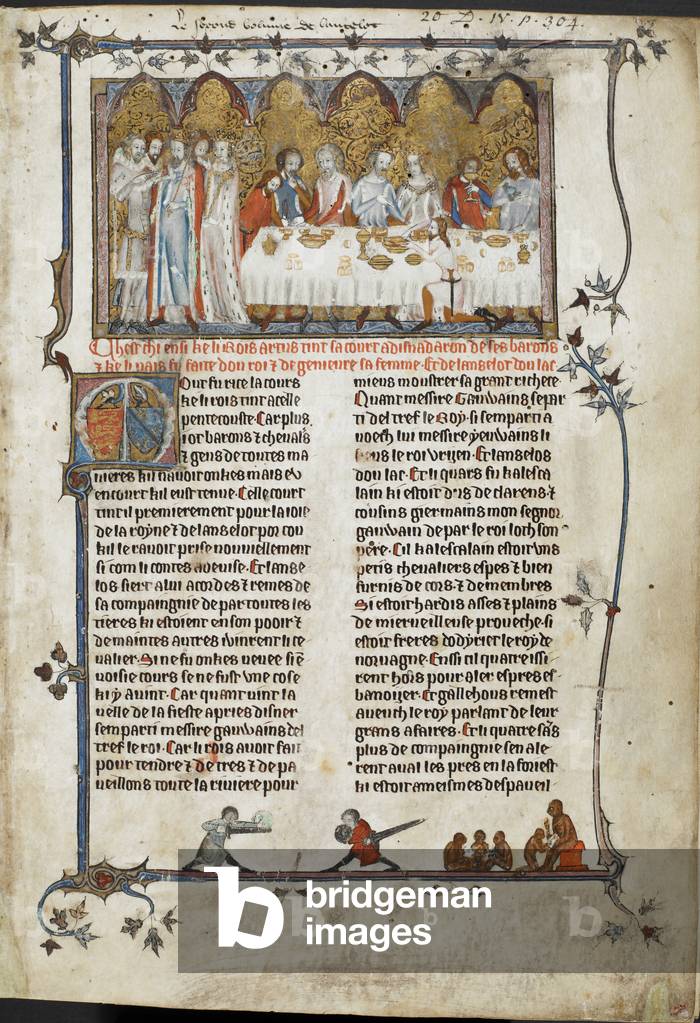 Le second volume de lancelot
20 D. IV p. 304.
Chest chi ensi ke li Rois artus tint sa court a disnadaron de ses barons
⁊ ke li uais fu faite dou roi ⁊ de genieure sa femme. Et de lanselot dou lac
Our fu rice la cours
ke li rois tint a celle
pentecouste. Car plus
i ot barons ⁊ cheualrs
⁊ gens de toutes ma
nieres kil nauoit onkes mais eu
en court kil eust tenue. Celle court
tint il premierement pour la ioie
de la royne ⁊ de lanselot por cou
kil le rauoit prise nouuellement
si com li contes a deuise. Et lanse
los siert a lui acordes ⁊ remes de
sa compaingnie de par toutes les
tieres ki estoient en son pooir ⁊
de maintes autres i uinrent li ce
ualier. Si ne fu onkes ueuee si en
uoisie cours se ne fust vne cose
ki y auint. Car quant uint la
uelle de la fieste apries disner
se mparti messire gauuains del
tref le roi. Car li rois auoit fait
pour tendre ⁊ de tres ⁊ de pa
ueillons toute la riuiere pour
mieus moustrer sa grant richete.
Quant messire Gauuains se par
ti del tref le Roy. si semparti a
uoech lui messire yeuuains li
le roi vrijen. Et lanselos
dou lac. Et li quars fu kalesca
lain ki estoit dus de clarens. ⁊
cousins giermains mon segnor
gauuain de par le roi loth son
pere. Cil kalescalain estoit vns
petis cheualiers espes ⁊ bien
furnis de cors. ⁊ de membres
Si estoit hardis asses ⁊ plains
de mierueilleuse proueche. si
estoit freres dodyrier le roy de
noruuagne. Ensi cil quatre issi
rent hors pour aler espres es
banoijer. Et gallehous remest
auench le roy parlant de leur
grans afaires. Et li quatre sans
plus de compaingnie sen ale
rent aual les pres en la foriest
ki estoit ameismes des paueil
bridgeman
images